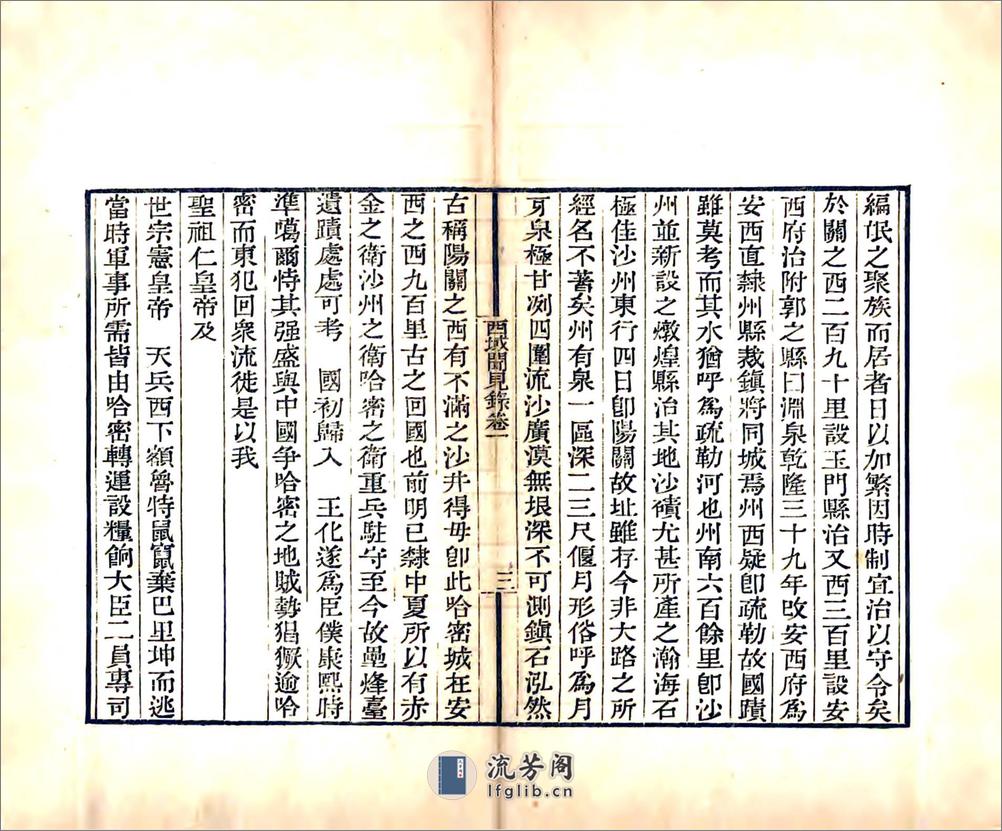 編氓之聚族而居者日以加繁因時制宜治以守令矣
於關之西二百九十里設玉門縣治又西三百里設安
西府治附郭之縣曰淵泉乾隆三十九年改安西府爲
安西直隸州縣裁鎮將同城焉州西疑卽疏勒故國蹟
雖莫考而其水猶呼爲疏勒河也州南六百餘里卽沙
州並新設之燉煌縣治其地沙磧尤甚所產之瀚海石
極佳沙州東行四日卽陽關故址雖存今非大路之所
經名不著矣州有泉一區深二三尺偃月形俗呼爲月
牙泉極甘冽四圍流沙廣漠無垠深不可測鎮石泓然
西域聞見錄卷一
三
古稱陽關之西有不滿之沙井得毋卽此哈密城在安
西之西九百里古之回國也前明已隸中夏所以有赤
金之衛沙州之衛哈密之衛重兵駐守至今故壘烽臺
遺蹟處處可考 國初歸入 王化遂爲臣僕康熙時
準噶爾恃其强盛與中國爭哈密之地賊勢猖獗逾哈
密而東犯回衆流徙是以我
聖祖仁皇帝及
世宗憲皇帝 天兵西下額魯特鼠竄棄巴里坤而逃
當時軍事所需皆由哈密轉運設糧餉大臣二員專司
流芳阁
lfglib.cn